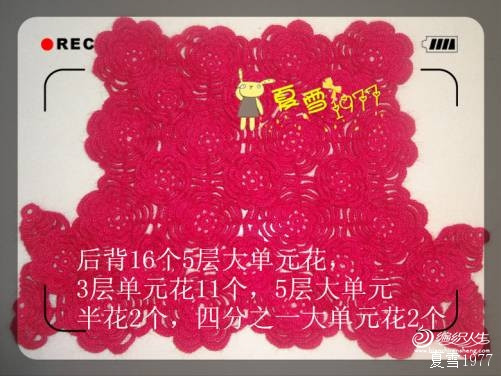 REC
夏雪1977
后背16个5层大单元花，
3层单元花11个，5层大单元
半花2个，四分之一大单元花2个
编织人生
夏雪1977